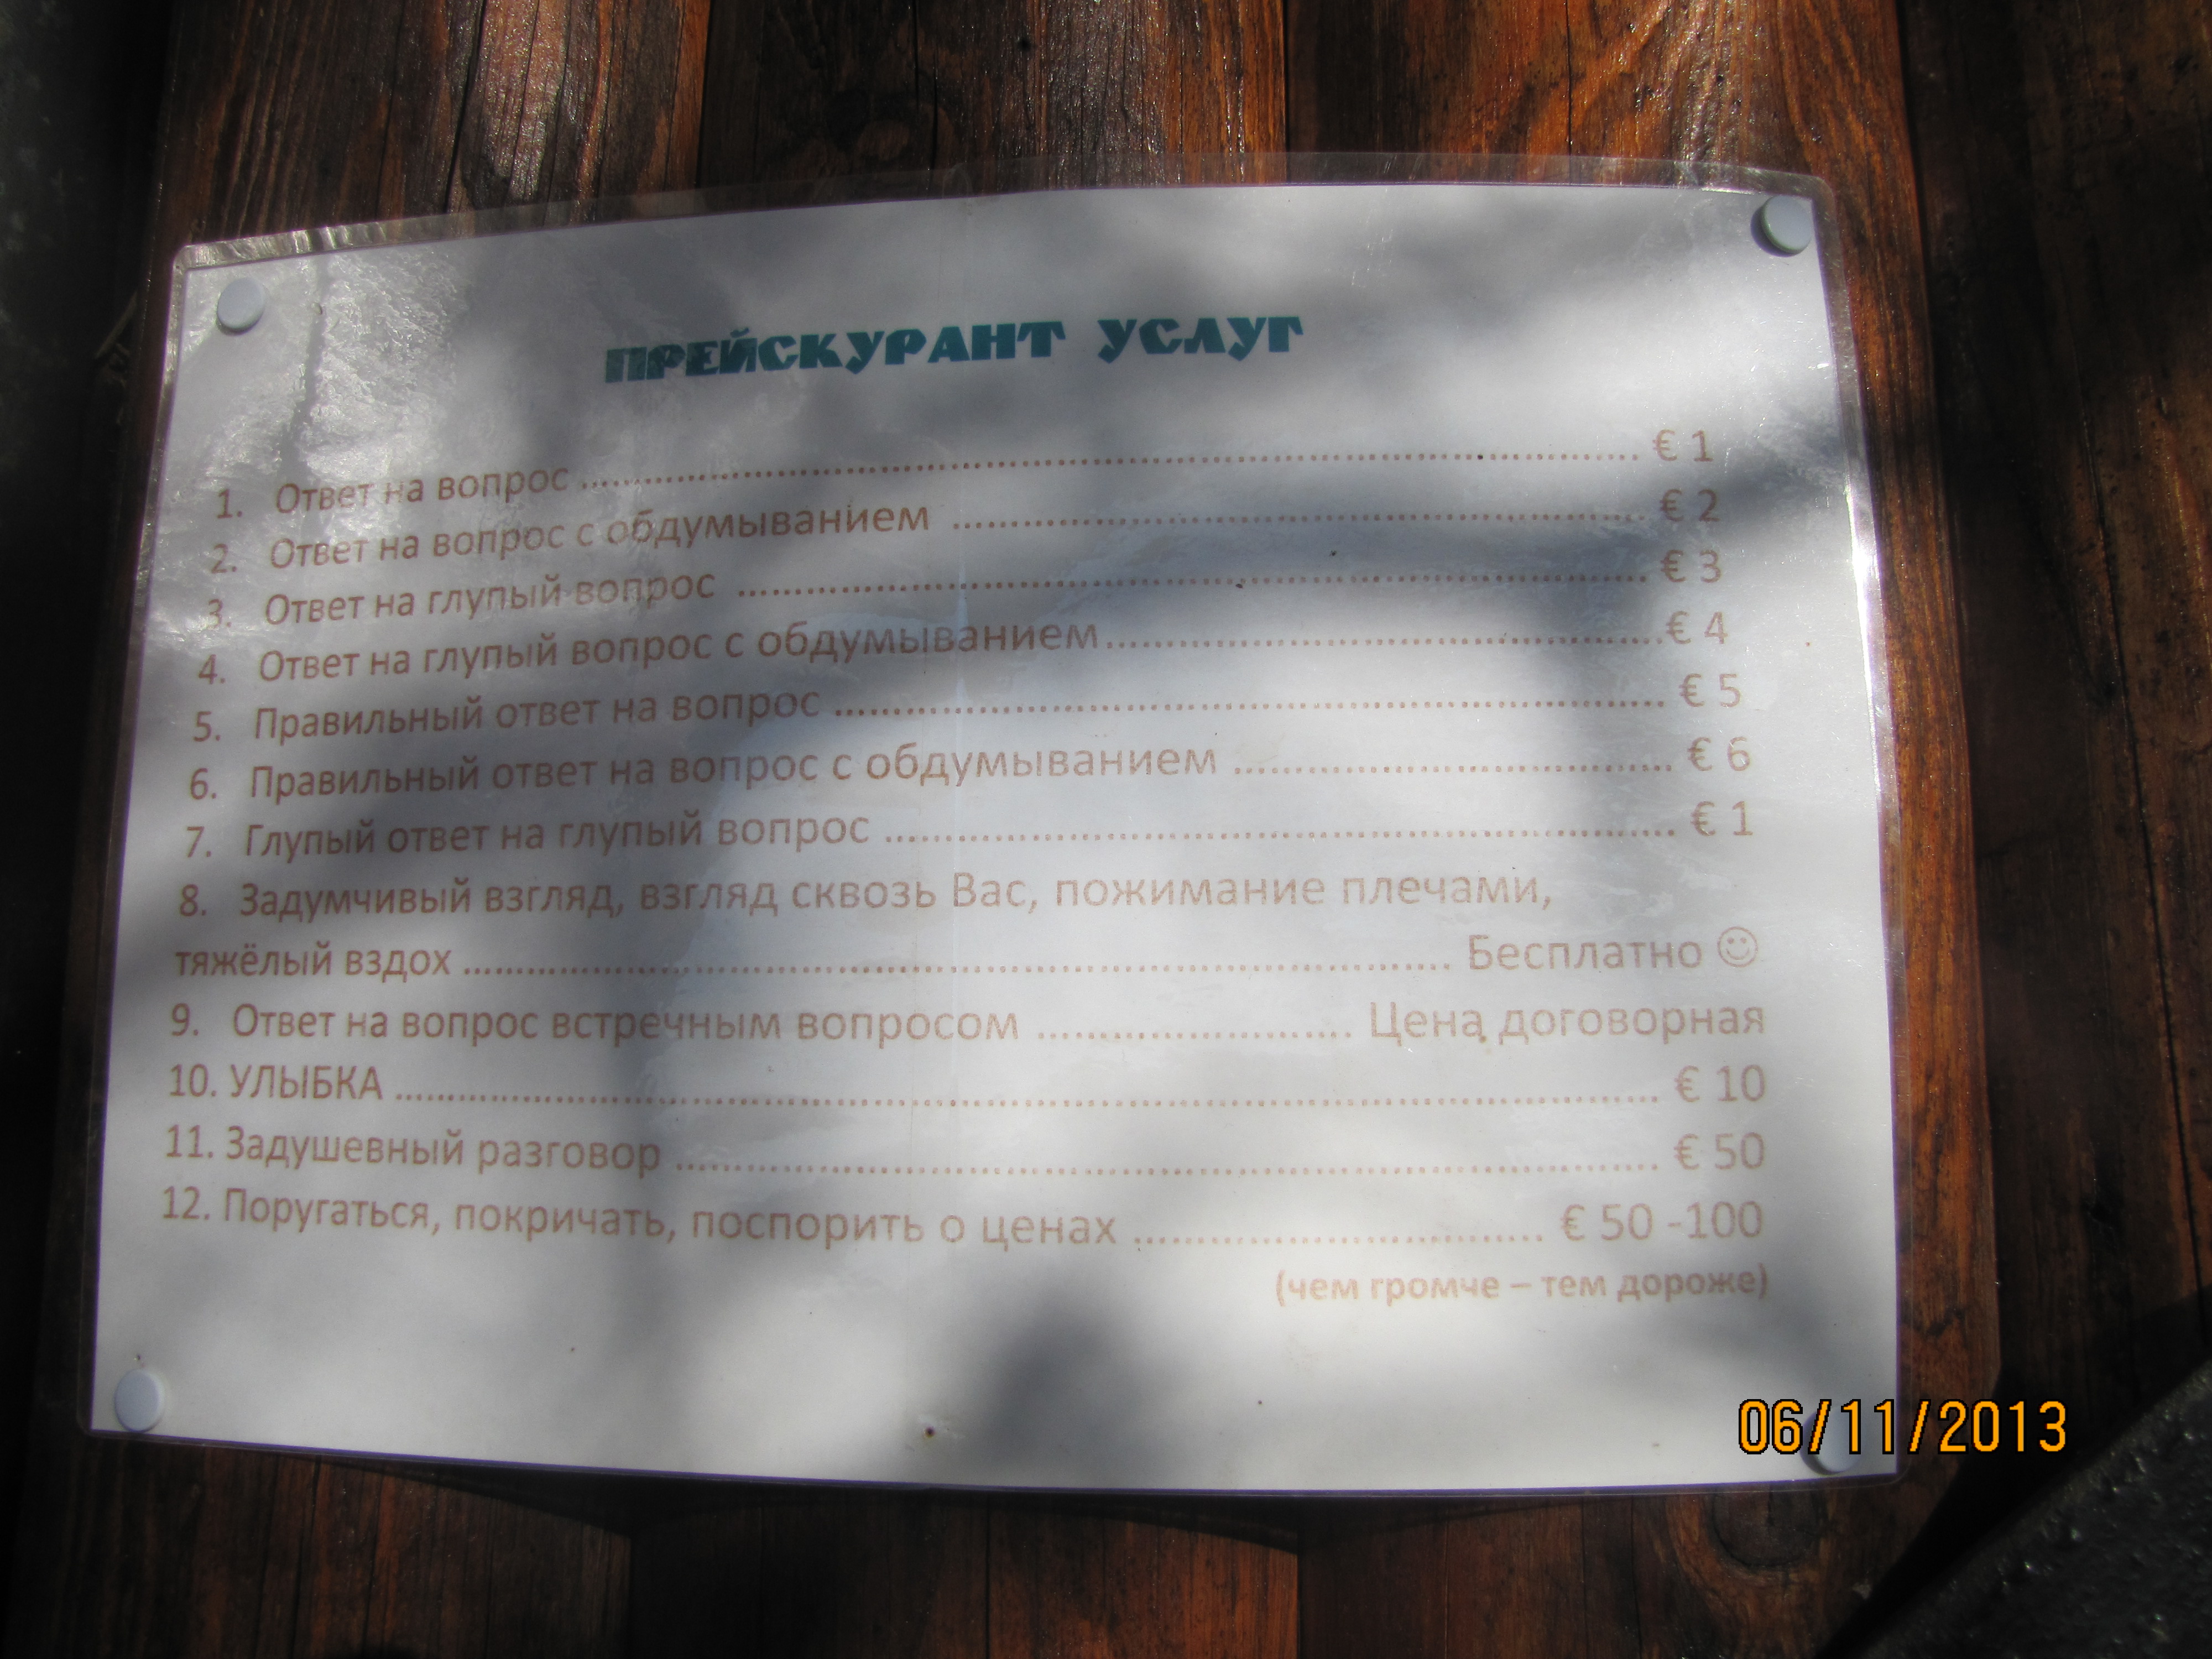 ПРЕЙСКУРАНТ УСЛУГ
1. Ответ на вопрос ........................ € 1
2. Ответ на вопрос с обдумыванием ........................ € 2
3. Ответ на глупый вопрос ........................ € 3
4. Ответ на глупый вопрос с обдумыванием ........................ € 4
5. Правильный ответ на вопрос ........................ € 5
6. Правильный ответ на вопрос с обдумыванием ........................ € 6
7. Глупый ответ на глупый вопрос ........................ € 1
8. Задумчивый взгляд, взгляд сквозь Вас, пожимание плечами,
тяжёлый вздох ........................ Бесплатно ☺
9. Ответ на вопрос встречным вопросом ........................ Цена договорная
10. УЛЫБКА ........................ € 10
11. Задушевный разговор ........................ € 50
12. Поругаться, покричать, поспорить о ценах ........................ € 50 -100
(чем громче – тем дороже)
06/11/2013